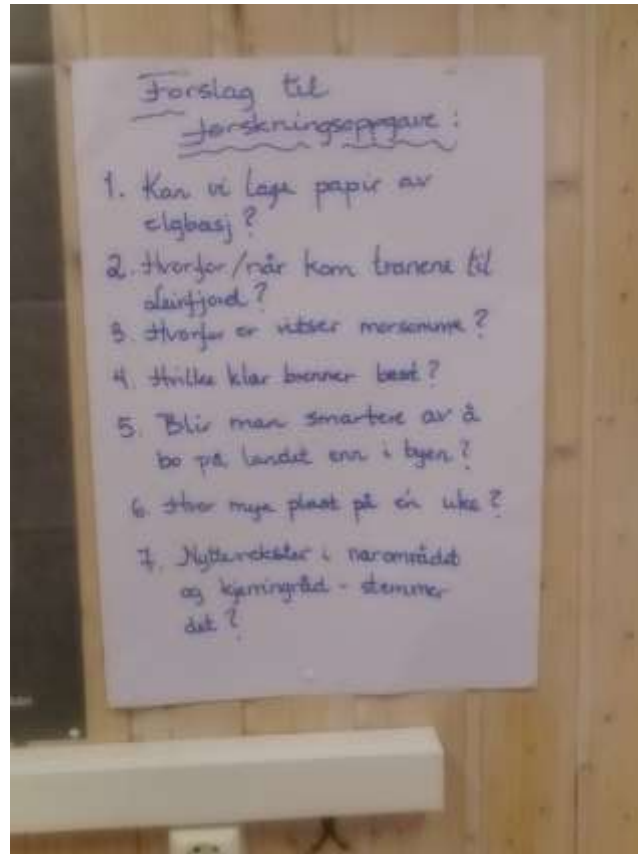 Forslag til
forskningsoppgave:
1. Kan vi lage papir av
elgbæsj?
2. Hvorfor/når kom tranene til
Leinfjord?
3. Hvorfor er vitser morsomme?
4. Hvilke klær brenner best?
5. Blir man smartere av å
bo på landet enn i byen?
6. Hvor mye plast på én uke?
7. Nyttevekster i nærområdet
og kjerringråd - stemmer
det?